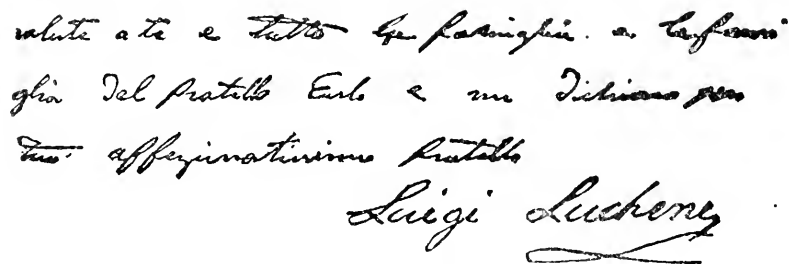 salute a te e tutto la famiglia. e la fami
glia del fratello Carlo e mi dichiaro per
tuo affezinatissimo fratello
Luigi Lucheni